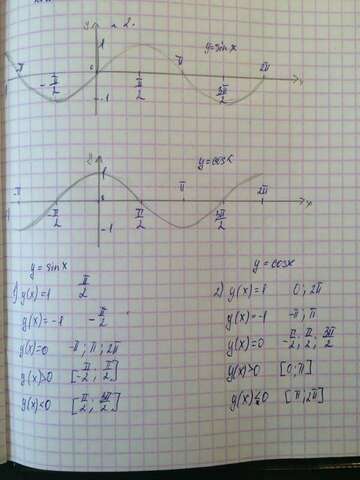 y
~ 2.
1
y=sinx
-π -π/2 0 π/2 π 3π/2 2π x
-1
y
1
y=cosx
-π -π/2 π/2 π 3π/2 2π x
-1
y=sinx
1) y(x)=1 π/2
y(x)=-1 -π/2
y(x)=0 -π; π; 2π
y(x)>0 [-π/2; π/2]
y(x)<0 [π/2; 3π/2]
y=cosx
2) y(x)=1 0; 2π
y(x)=-1 -π; π
y(x)=0 -π/2; π/2; 3π/2
y(x)>0 [0; π]
y(x)<0 [π; 2π]